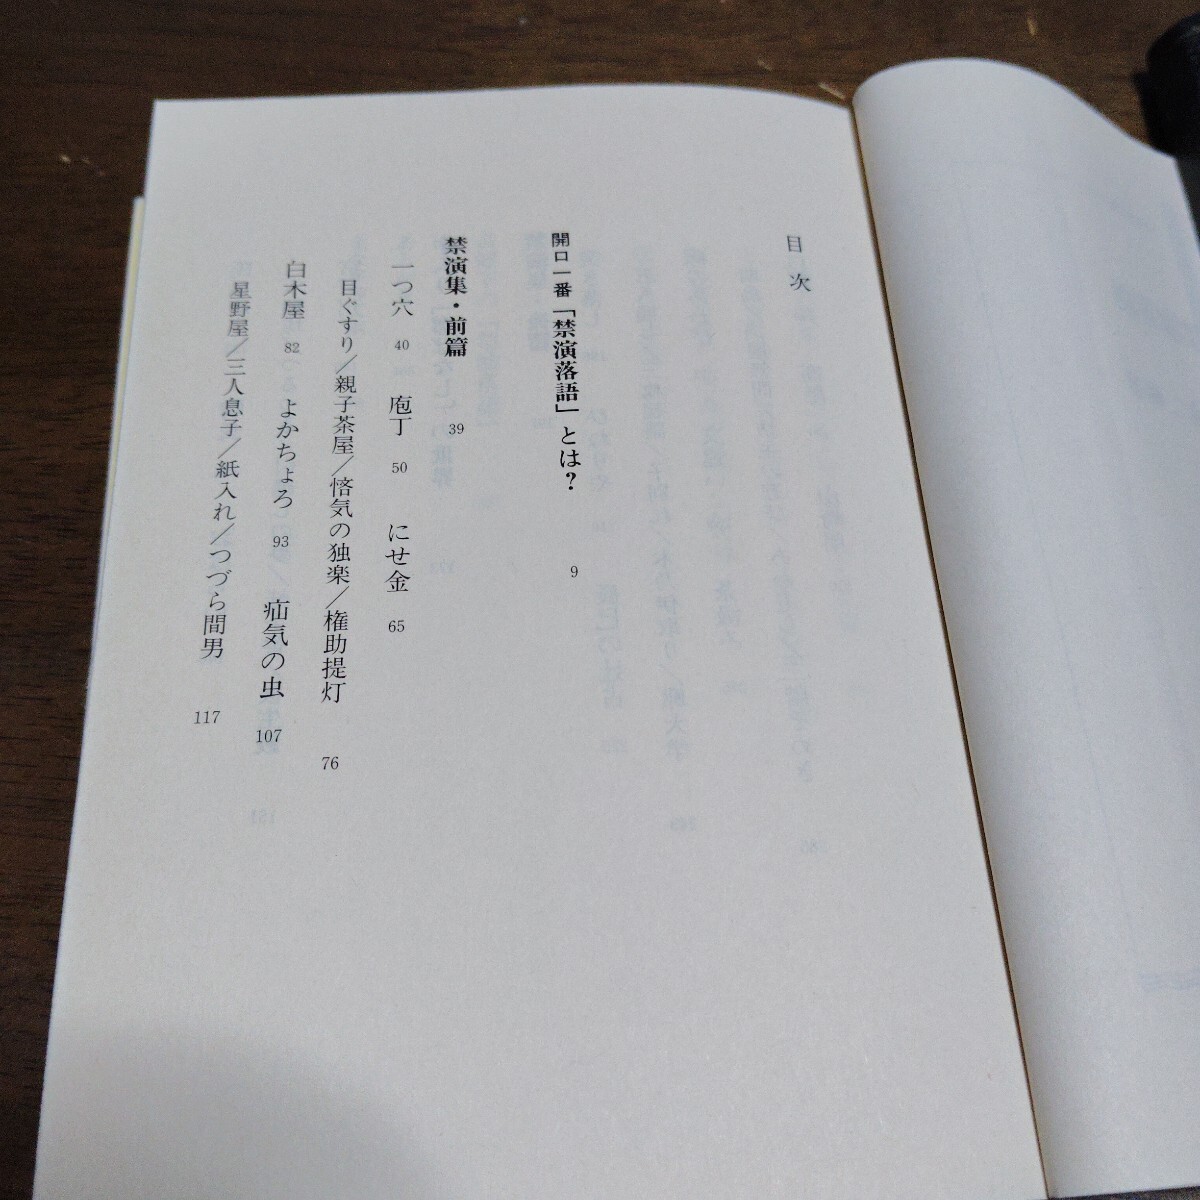 目次
開口一番「禁演落語」とは？ 9
禁演集・前篇 39
一つ穴 40 庖丁 50 にせ金 65
目ぐすり／親子茶屋／悋気の独楽／権助提灯 76
白木屋 82 よかちょろ 93 疝気の虫 107
星野屋／三人息子／紙入れ／つづら間男 117